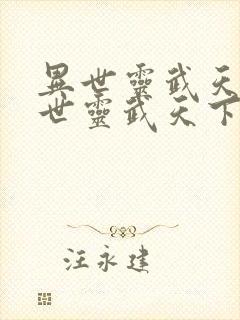 異世靈武天
世靈武天下
汪永建